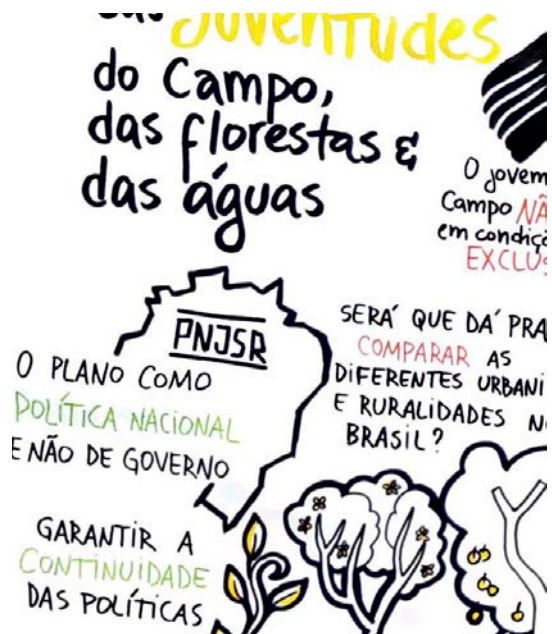 das Juventudes
do Campo,
das florestas &
das águas
O jovem
Campo
em condiçã
PNJSR
O PLANO COMO
POLÍTICA NACIONAL
E NÃO DE GOVERNO
SERÁ QUE DÁ PRA
COMPARAR AS
DIFERENTES URBANI
E RURALIDADES
BRASIL?
GARANTIR A
CONTINUIDADE
DAS POLÍTICAS